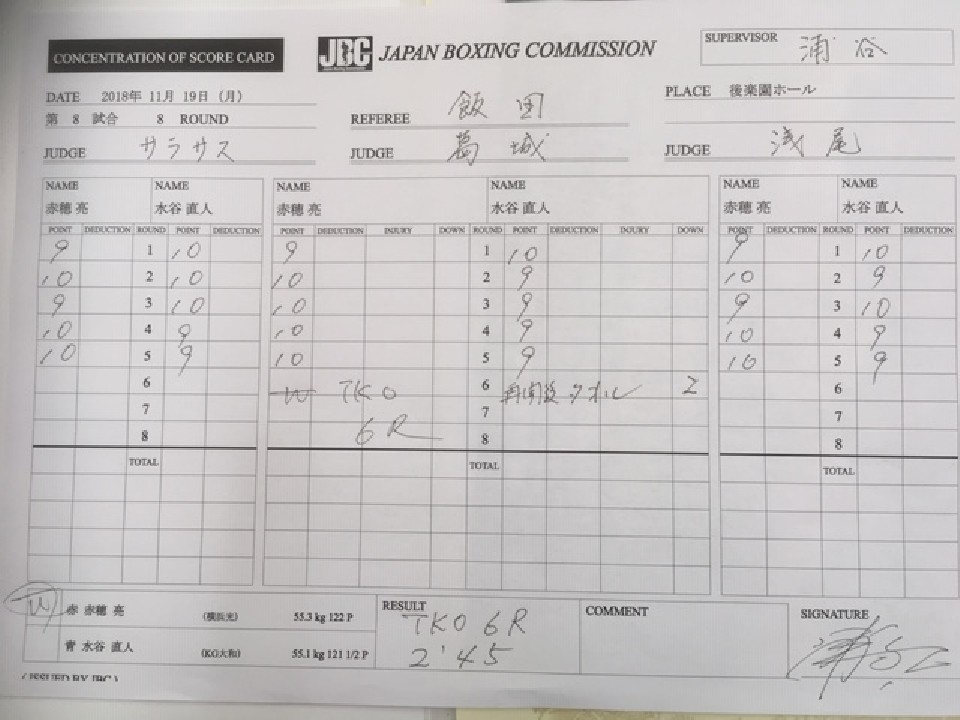 CONCENTRATION OF SCORE CARD
JBC JAPAN BOXING COMMISSION
SUPERVISOR 浦谷
DATE 2018年 11月 19日 (月)
PLACE 後楽園ホール
第 8 試合 8 ROUND
REFEREE 飯田
JUDGE サラサス
JUDGE 葛城
JUDGE 浅尾
NAME NAME NAME NAME NAME NAME
赤穂 亮 水谷 直人 赤穂 亮 水谷 直人 赤穂 亮 水谷 直人
POINT DEDUCTION ROUND POINT DEDUCTION POINT DEDUCTION INJURY DOWN ROUND POINT DEDUCTION INJURY DOWN POINT DEDUCTION ROUND POINT DEDUCTION
9 1 10 9 1 10 9 1 10
10 2 10 10 2 9 10 2 9
9 3 10 10 3 9 9 3 10
10 4 9 10 4 9 10 4 9
10 5 9 10 5 9 10 5 9
6 W TKO 6 再開後タオル 2 6
7 6R 7 7
8 8 8
TOTAL TOTAL TOTAL
W 赤 赤穂 亮 (横浜光) 55.3 kg 122 P
青 水谷 直人 (KO大和) 55.1 kg 121 1/2 P
RESULT
TKO 6R
2'45
COMMENT
SIGNATURE